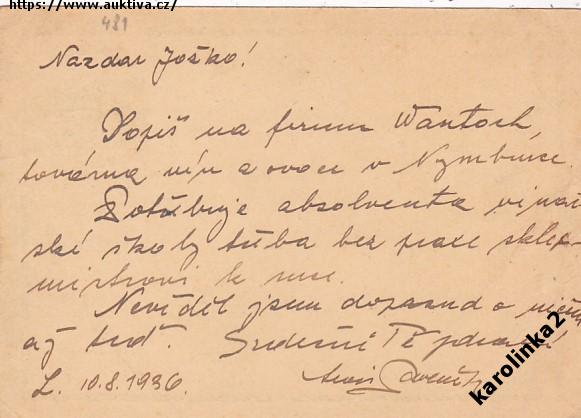 https://www.auktiva.cz/
481
Nazdar Joško!
Dopiš na firmu Wantoch,
továrna vín a ovoce v Nymburce.
Potřebuje absolventa vinař-
ské školy třeba bez praxe sklep-
mistrovi k ruce.
Nevěděl jsem doposud o ničem
až teď. Srdečně Tě zdraví!
L. 10.8.1936.
karolinka2